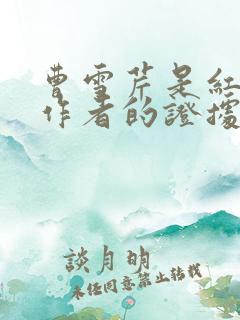 曹雪芹是紅
作者的證據
談月明
未經同意禁止轉載